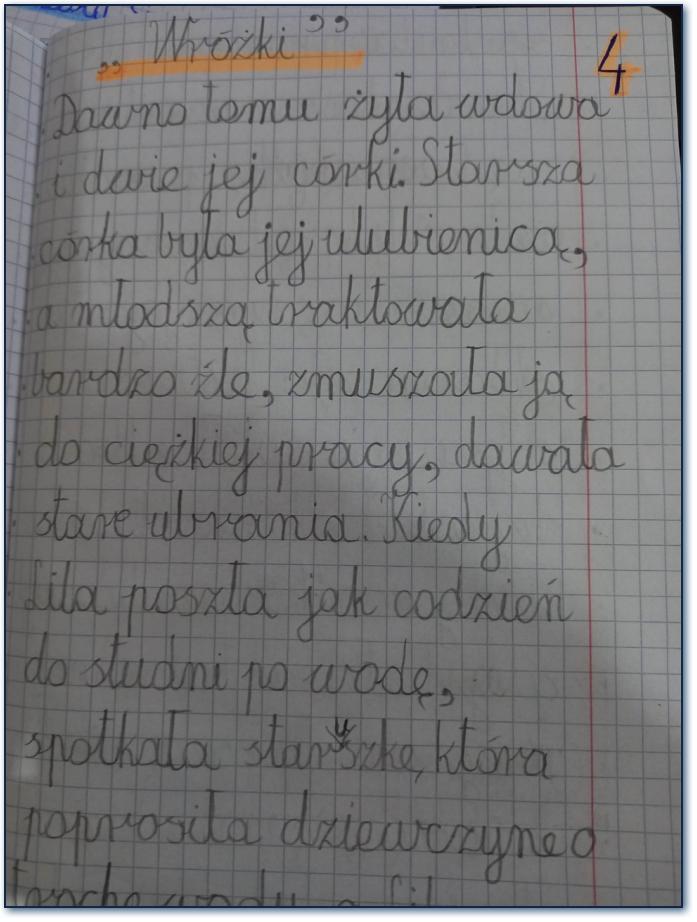 „Wróżki”
4
Dawno temu żyła wdowa
i dwie jej córki. Starsza
córka była jej ulubienicą,
a młodszą traktowała
bardzo źle, zmuszała ją
do ciężkiej pracy, dawała
stare ubrania. Kiedy
Lila poszła jak codzień
do studni po wodę,
spotkała staruszkę, która
poprosiła dziewczynę o